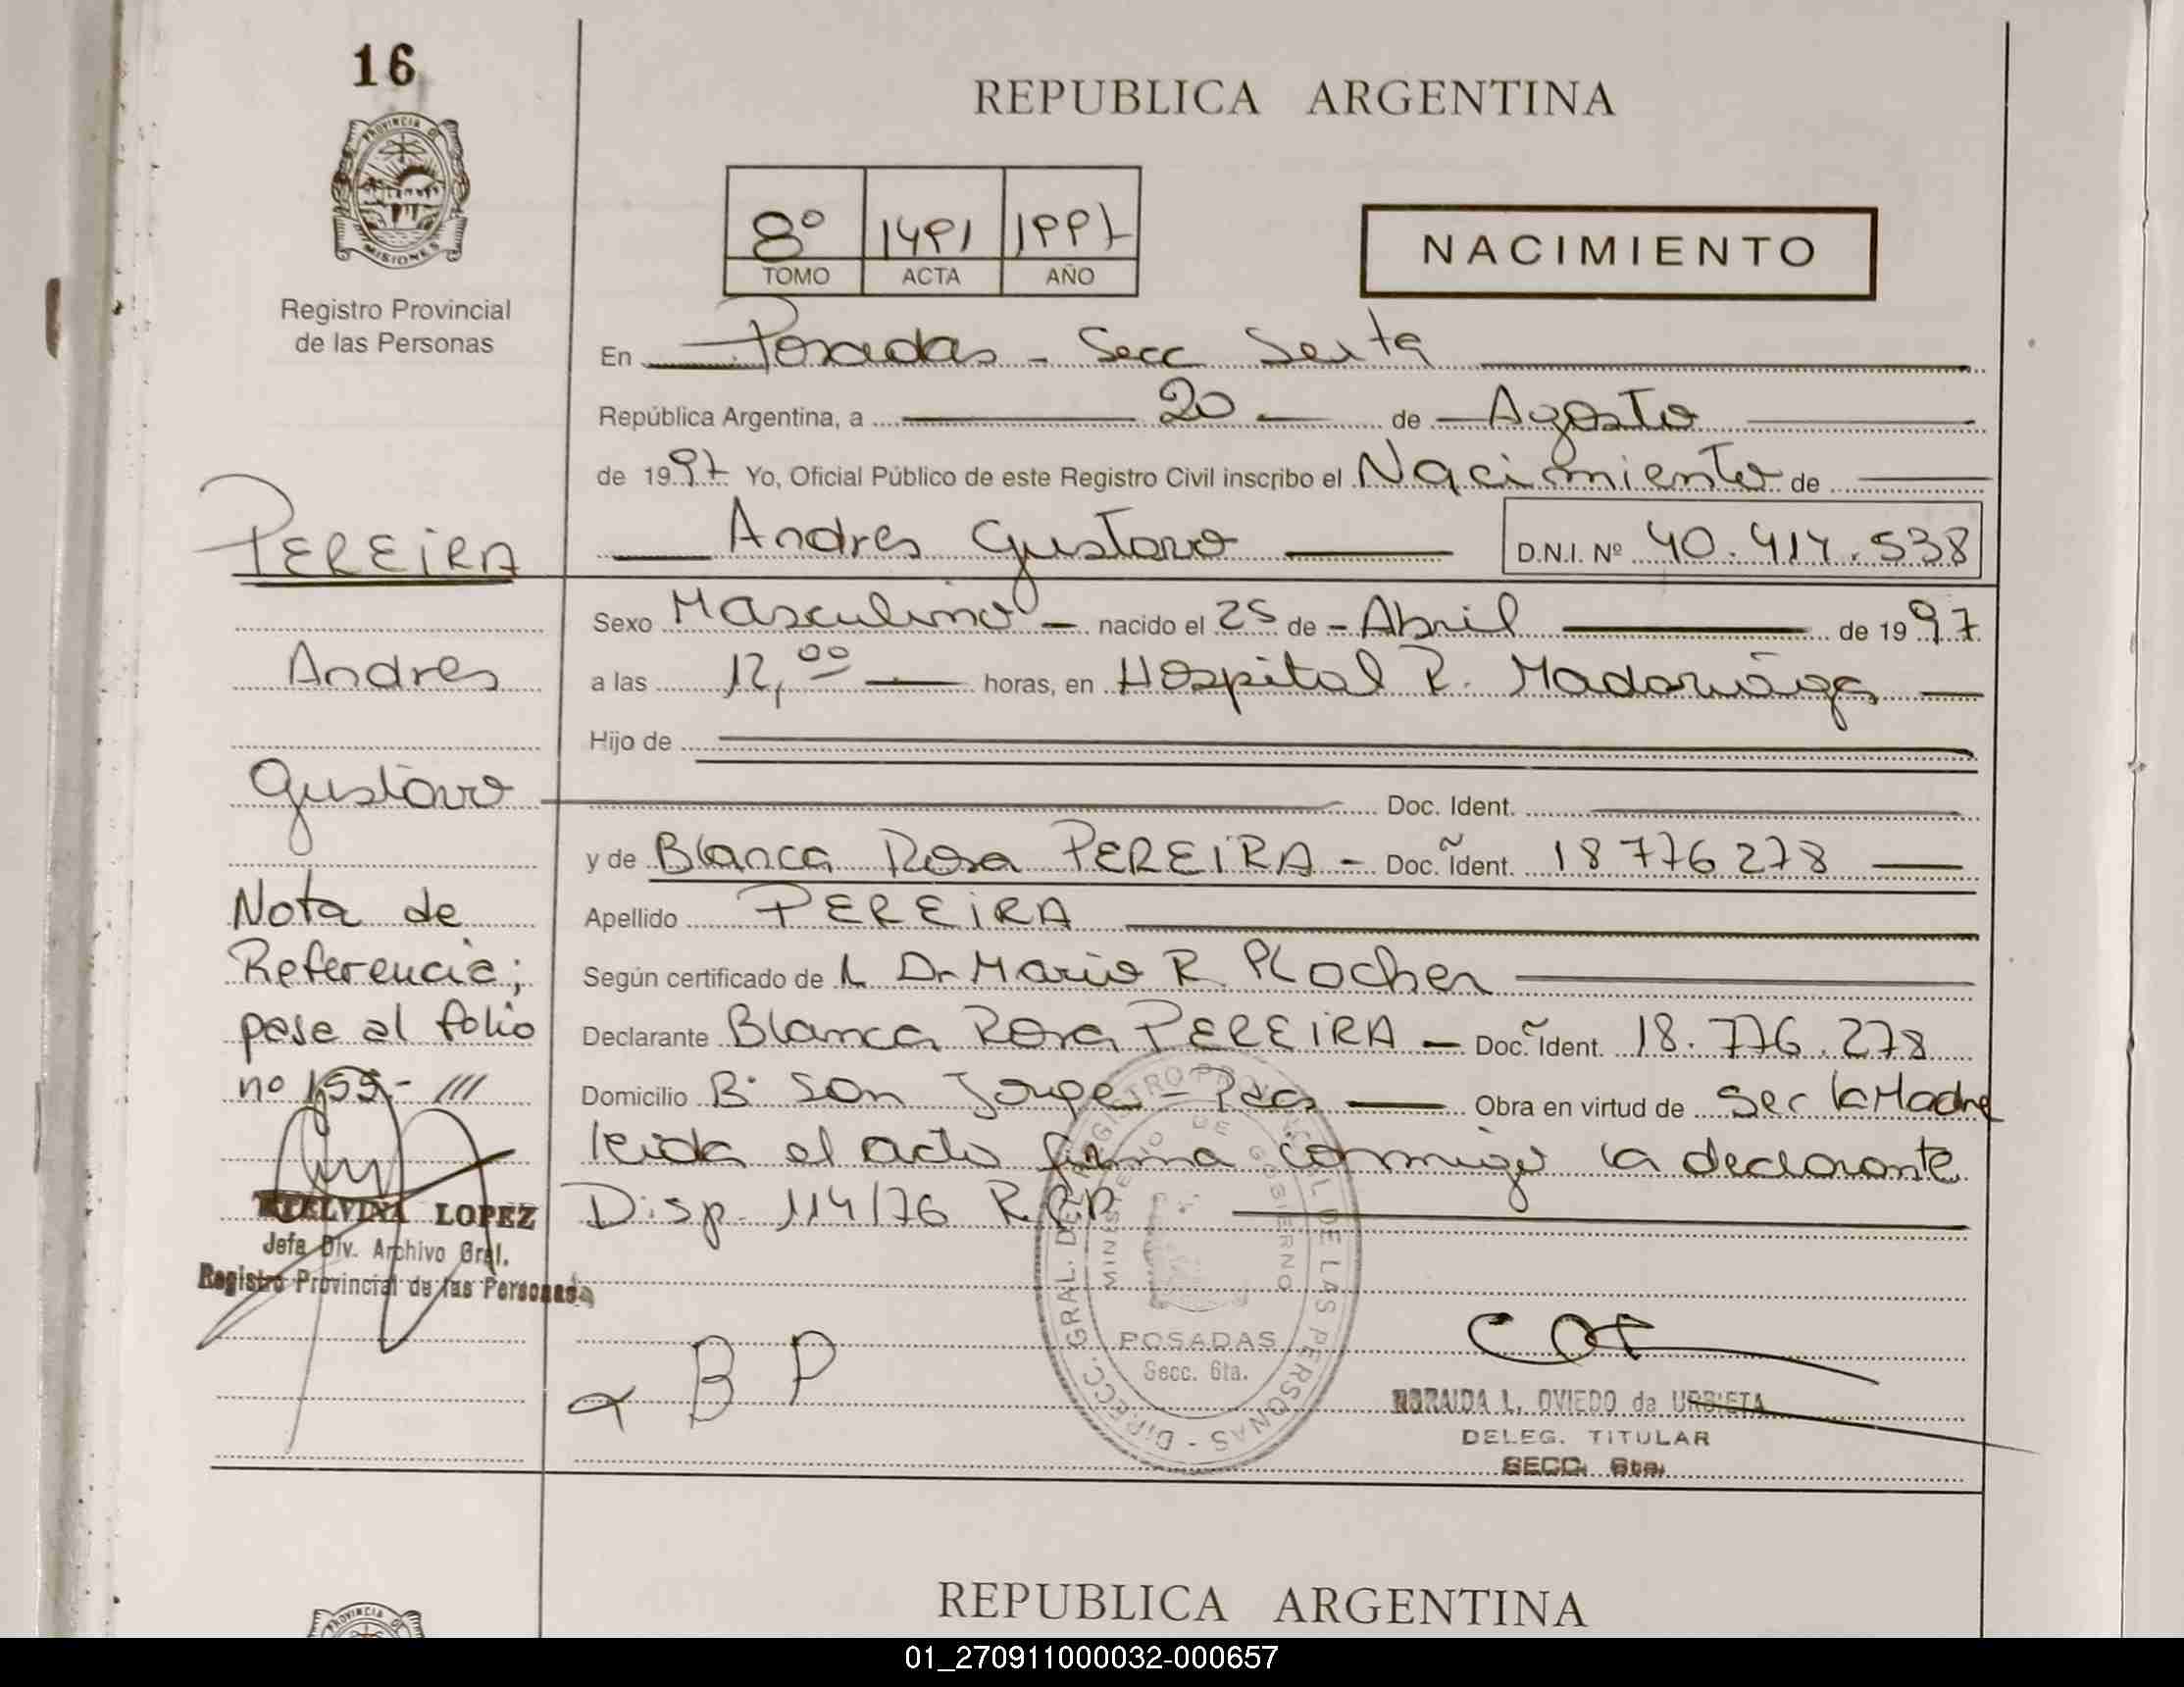 16
PROVINCIA DE
MISIONES
Registro Provincial
de las Personas
REPUBLICA ARGENTINA
8º 1491 1997
TOMO ACTA AÑO
NACIMIENTO
En Posadas - Secc Sexta
República Argentina, a 20 de Agosto
de 1997 Yo, Oficial Público de este Registro Civil inscribo el Nacimiento de
Andres Gustavo D.N.I. Nº 40.417.538
Sexo Masculino nacido el 25 de Abril de 1997
a las 12,00 horas, en Hospital R. Madariaga
Hijo de
Doc. Ident.
y de Blanca Rosa PEREIRA - Doc. Ident. 18776278
Apellido PEREIRA
Según certificado de L Dr Mario R Plocher
Declarante Blanca Rosa PEREIRA - Doc. Ident. 18.776.278
Domicilio Bº San Jorge - Pdas Obra en virtud de Ser la Madre
leida el acta firma conmigo la declarante
Disp. 114/76 R.P.P.
B P
DIRECC. GRAL. DEL REGISTRO PROVINCIAL DE LAS PERSONAS
MINISTERIO DE GOBIERNO
POSADAS
Secc. 6ta.
NORAIDA L. OVIEDO de URBIETA
DELEG. TITULAR
SECC. 6ta.
PEREIRA
Andres
Gustavo
Nota de
Referencia;
pase al folio
nº 155- ///
ETELVINA LOPEZ
Jefa Div. Archivo Gral.
Registro Provincial de las Personas
REPUBLICA ARGENTINA
PROVINCIA
01_270911000032-000657